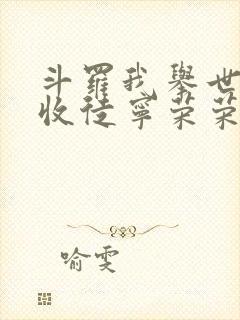 斗羅我舉世
收徒寧荣荣
喻雯